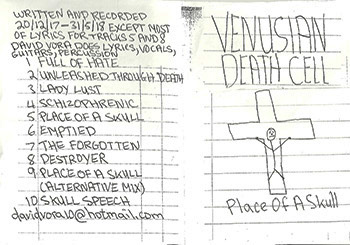 WRITTEN AND RECORDED
20/12/17-3/5/18 EXCEPT MOST
OF LYRICS FOR TRACKS 5 AND 8
DAVID VORA DOES LYRICS, VOCALS,
GUITARS, PERCUSSION
1 FULL OF HATE
2 UNLEASHED THROUGH DEATH
3 LADY LUST
4 SCHIZOPHRENIC
5 PLACE OF A SKULL
6 EMPTIED
7 THE FORGOTTEN
8 DESTROYER
9 PLACE OF A SKULL
(ALTERNATIVE MIX)
10 SKULL SPEECH
davidvora10@hotmail.com
VENUSIAN
DEATH CELL
Place Of A Skull